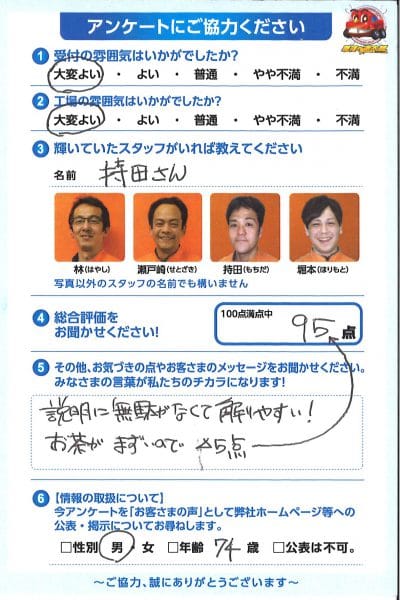 アンケートにご協力ください
1 受付の雰囲気はいかがでしたか?
大変よい ・ よい ・ 普通 ・ やや不満 ・ 不満
2 工場の雰囲気はいかがでしたか?
大変よい ・ よい ・ 普通 ・ やや不満 ・ 不満
3 輝いていたスタッフがいれば教えてください
名前 持田さん
林(はやし) 瀬戸崎(せとざき) 持田(もちだ) 堀本(ほりもと)
写真以外のスタッフの名前でも構いません
4 総合評価を
お聞かせください!
100点満点中
95 点
5 その他、お気づきの点やお客さまのメッセージをお聞かせください。
みなさまの言葉が私たちのチカラになります!
説明に無駄がなくて解りやすい!
お茶がまずいので 5点
6 【情報の取扱について】
今アンケートを「お客さまの声」として弊社ホームページ等への
公表・掲示についてお尋ねします。
□性別 男・女 □年齢 74 歳 □公表は不可。
〜ご協力、誠にありがとうございます〜